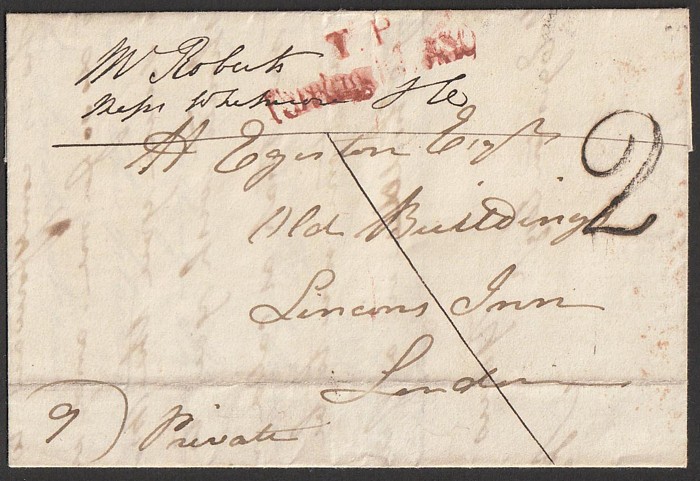 T.P
Mr Roberts
Messrs Whitmore & Co
H Egerton Esqr
Old Buildings
Lincons Inn
London
2
9) Private